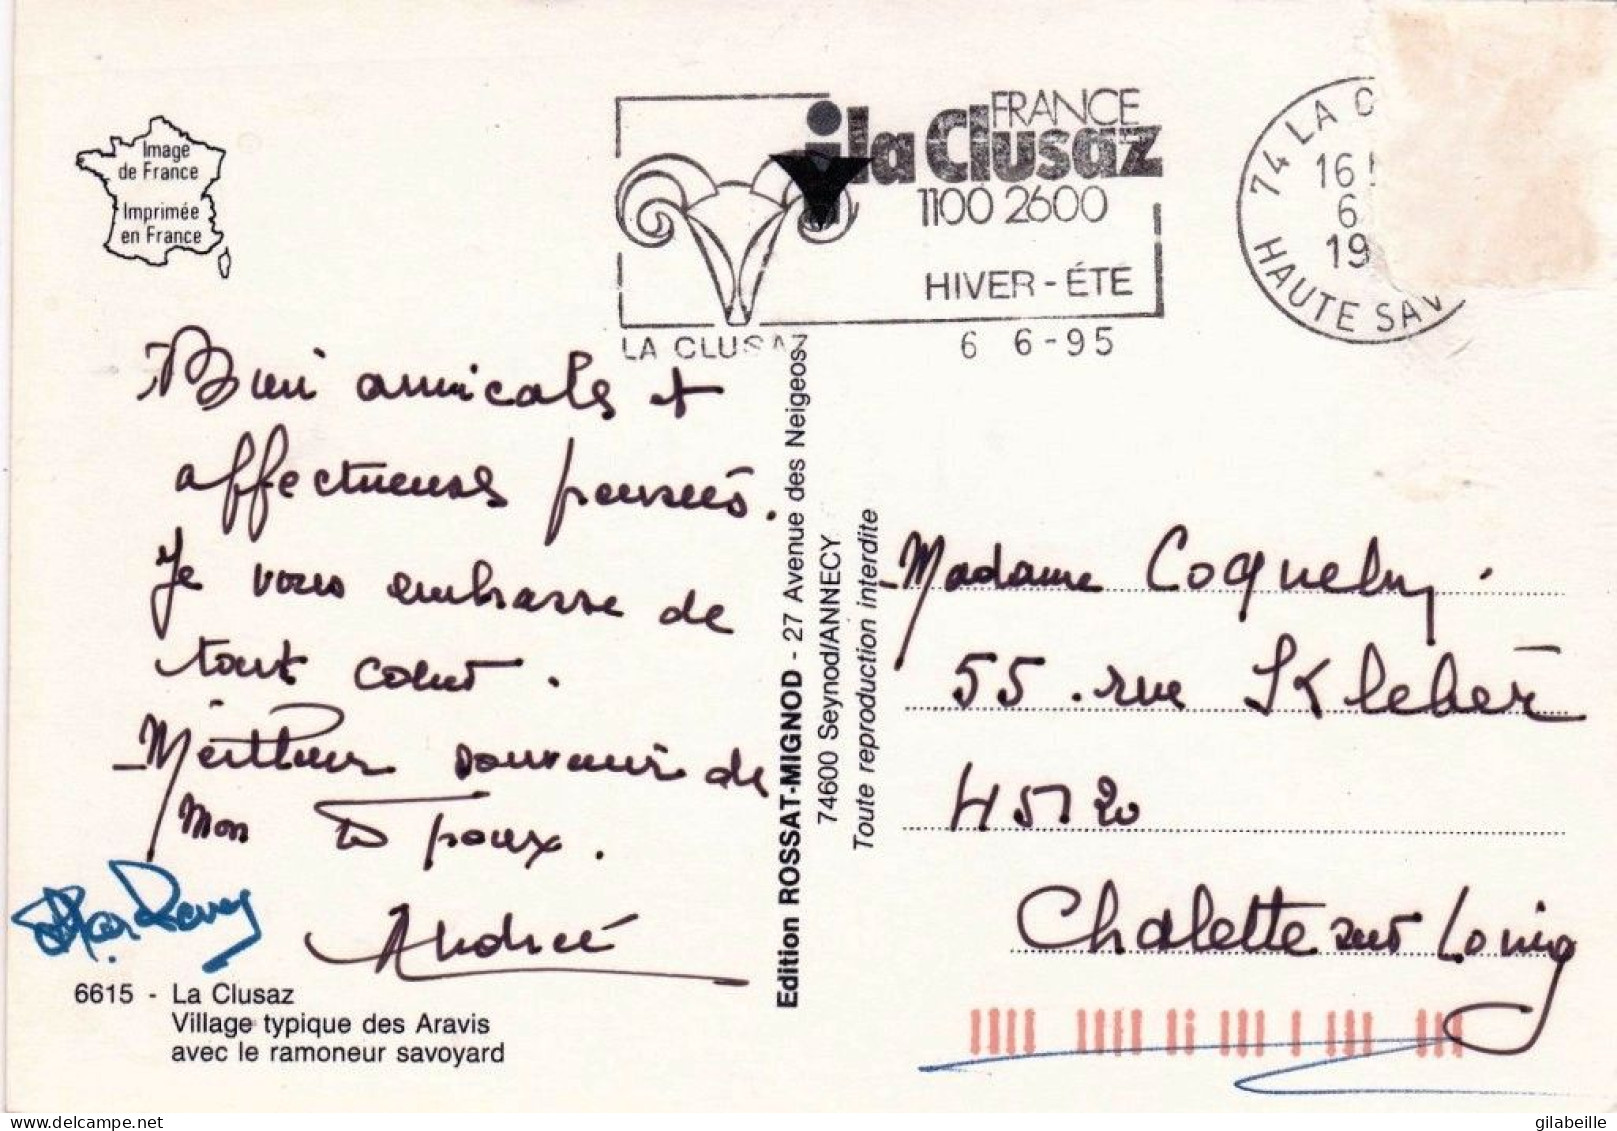 Image
de France
Imprimée
en France
FRANCE
la Clusaz
1100 2600
HIVER - ÉTÉ
LA CLUSAZ
6 6-95
74 LA C
16
6
19
HAUTE SAV
amicales et
affectueuses pensées.
Je vous embrasse de
tout coeur.
Meilleur souvenir de
Mon Epoux.
Andrée
6615 - La Clusaz
Village typique des Aravis
avec le ramoneur savoyard
Edition ROSSAT-MIGNOD - 27 Avenue des Neigeos
74600 Seynod/ANNECY
Toute reproduction interdite
Madame
55 . rue Kleber
45120
Chalette sur Loing
gilabeille